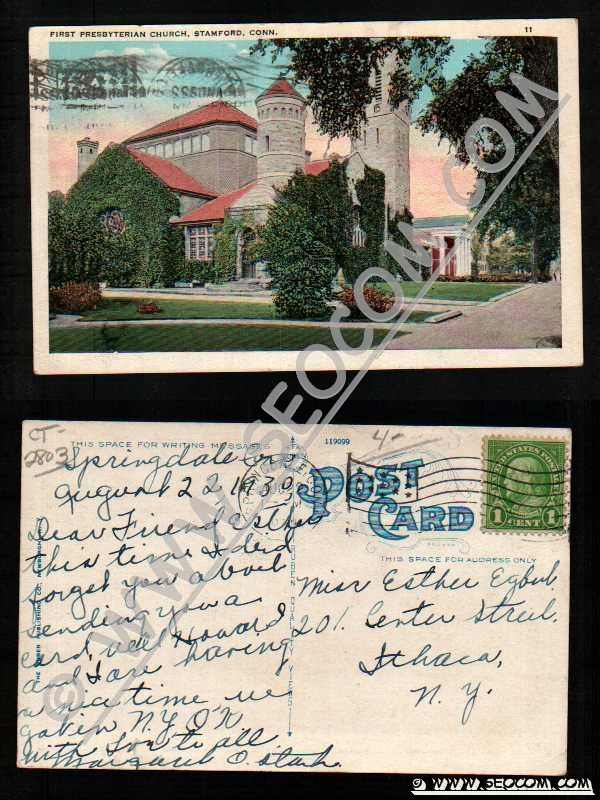 FIRST PRESBYTERIAN CHURCH, STAMFORD, CONN.
11
© WWW.SEOCOM.COM
CT-
2803
THIS SPACE FOR WRITING MESSAGES
119099
4-
POST
CARD
THIS SPACE FOR ADDRESS ONLY
1 CENT 1
Springdale Conn
August 22 1930
Dear Friend Esther
this time I did
forget you about
sending you a
card, well Howard
and I are having
a nice time we
N.Y. O'K
with Love to all
Margaret O.
Miss Esther Egbert
201 Center Street.
Ithaca,
N. Y.
© WWW.SEOCOM.COM